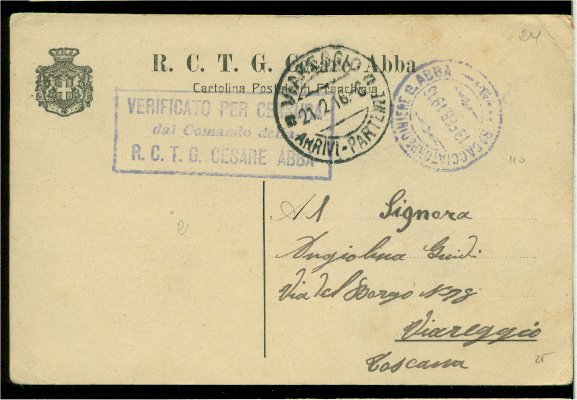 R. C. T. G. Cesare Abba
Cartolina Postale in Franchigia
VERIFICATO PER CENSURA
dal Comando della
R. C. T. G. CESARE ABBA
VIAREGGIO
21.2.16
ARRIVI-PARTENZE
ABBA
Al Signora
Angiolina Guidi
Via del Borgo N 78
Viareggio
Toscana
2
24
110
25